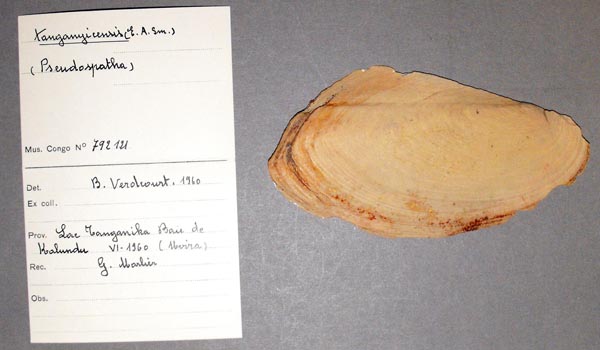 Tanganyicensis (E. A. Sm.)
(Pseudospatha)
Mus. Congo Nº 792121
Det. B. Verdcourt, 1960
Ex coll.
Prov. Lac Tanganika Baie de
Kalundu VI-1960 (Uvira)
Rec. G. Marlier
Obs.